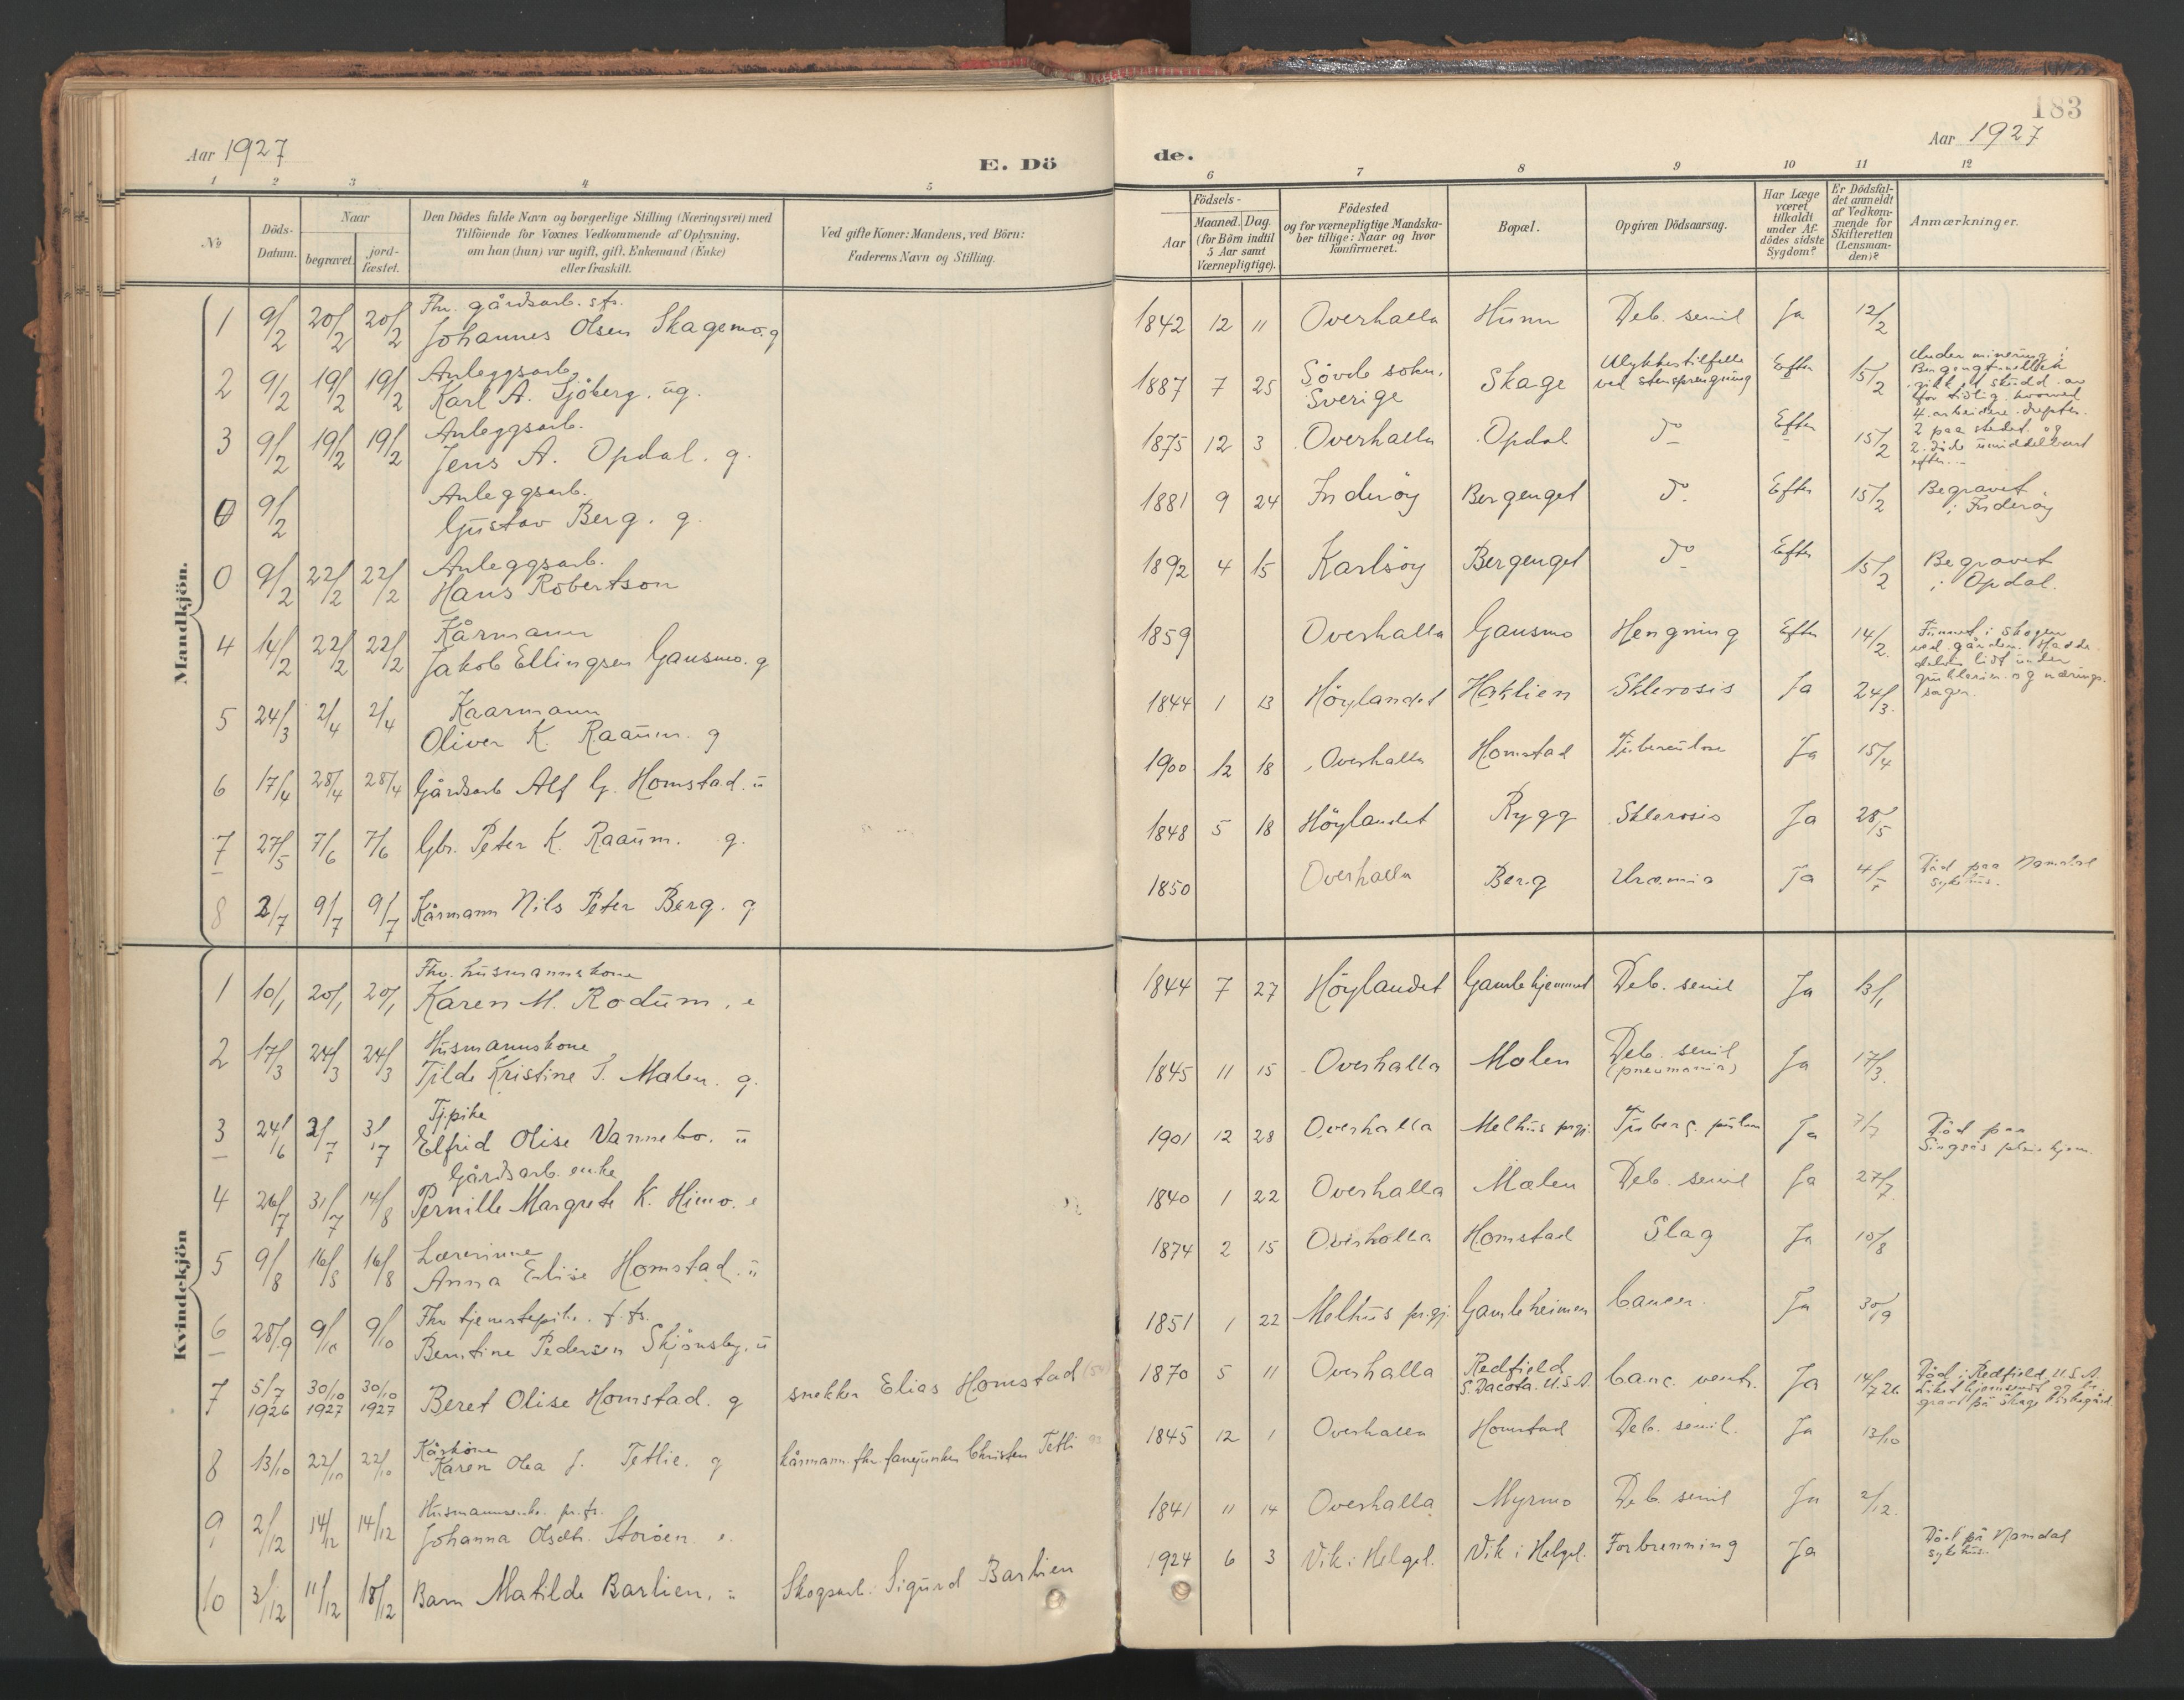 183
Aar 1927
E. Dö
de.
Aar 1927
1 2 3 4 5 6 7 8 9 10 11 12
№
Döds-
Datum.
Naar
begravet.
jord-
fæstet.
Den Dödes fulde Navn og borgerlige Stilling (Næringsvei) med
Tilföiende for Voxnes Vedkommende af Oplysning,
om han (hun) var ugift, gift, Enkemand (Enke)
eller fraskilt.
Ved gifte Koner: Mandens, ved Börn:
Faderens Navn og Stilling.
Födsels-
Aar
Maaned. Dag.
(for Börn indtil
5 Aar samt
Værnepligtige).
Födested
og for værnepligtige Mandska-
ber tillige: Naar og hvor
konfirmeret.
Bopæl.
Opgiven Dödsaarsag.
Har Læge
været
tilkaldt
under Af-
dödes sidste
Sygdom?
Er Dödsfal-
det anmeldt
af Vedkom-
mende for
Skifteretten
(Lensman-
den)?
Anmærkninger.
Mandkjön.
Fhv. gårdsarb. sfr.
1 9/2 20/2 20/2 Johannes Olsen Skagemo. g 1842 12 11 Overhalla Hunn Deb. senil Ja 12/2
Anleggsarb.
2 9/2 19/2 19/2 Karl A. Sjöberg. ug. 1887 7 25 Sövde sokn, Sverige Skage Ulykkestilfelle ved stensprengning Efter 15/2
Under minering i
Bergengtunellen
gikk et skudd av
for tidlig hvorved
4 arbeidere dreptes.
2 paa stedet og
2 döde umiddelbart
efter.
Anleggsarb.
3 9/2 19/2 19/2 Jens A. Opdal. g. 1875 12 3 Overhalla Opdal Do Efter 15/2
Anleggsarb.
0 9/2 Gustav Berg. g. 1881 9 24 Inderöy Bergenget Do Efter 15/2 Begravet
i Inderöy
Anleggsarb.
0 9/2 22/2 22/2 Hans Robertson 1892 4 15 Karlsöy Bergenget Do Efter 15/2 Begravet
i Opdal.
Kårmann
4 14/2 22/2 22/2 Jakob Ellingsen Gansmo. g 1859 Overhalla Gansmo Hengning Efter 14/2. Funnet i skogen
ved gården. Hadde
lidt under
og nærings-
sorger.
Kaarmann
5 24/3 2/4 2/4 Oliver K. Raaum. g 1844 1 13 Höylandet Haklien Sklerosis Ja 24/3.
6 17/4 28/4 28/4 Gårdsarb Alf G. Homstad. u 1900 12 18 Overhalla Homstad Tuberculose Ja 15/4
7 27/5 7/6 7/6 Gbr. Peter K. Raaum. g. 1848 5 18 Höylandet Rygg Sklerosis Ja 28/5
8 2/7 9/7 9/7 Kårmann Nils Peter Berg. g 1850 Overhalla Berg Uræmia Ja 4/7 Död paa Namdal
sykehus.
Kvindekjön
Fhv. husmannskone
1 10/1 20/1 20/1 Karen M. Rodum. e 1844 7 27 Höylandet Gamlehjemmet Deb. senil Ja 13/1
Husmannskone
2 17/3 24/3 24/3 Tilde Kristine S. Malen. g. 1845 11 15 Overhalla Malen Deb. senil
(pneumonia) Ja 17/3.
Tj.pike
3 24/6 2/7 3/7 Elfrid Olise Vannebo. u 1901 12 28 Overhalla Melhus prgj. Tuberc. pulm Ja 7/7 Död paa
Singsås pleiehjem.
Gårdsarb. enke
4 26/7 31/7 14/8 Pernille Margrete K. Himo. e 1840 1 22 Overhalla Malen Deb. senil Ja 27/7.
Lærerinne
5 9/8 16/8 16/8 Anna Elise Homstad. u 1874 2 15 Overhalla Homstad Slag Ja 10/8
Fhv tjenestepike. f. fs.
6 28/9 9/10 9/10 Berntine Pedersen Skjönsby. u 1851 1 22 Melhus prgj. Gamleheimen Cancer Ja 30/9
7 5/7 1926 30/10 1927 30/10 1927 Beret Olise Homstad. g snekker Elias Homstad 1870 5 11 Overhalla Redfield
S. Dacota. U.S.A. Canc. ventr. Ja 14/7 26. Död i Redfield, U.S.A.
Liket hjemsendt og be-
gravet på Skage kirkegård.
Kårkone
8 13/10 22/10 22/10 Karen Olea J. Tetlie. g kårmann. fhv. fanejunker Christen Tetli 1845 12 1 Overhalla Homstad Deb. senil. Ja 13/10
Husmannsenke. pr.fs.
9 2/12 14/12 14/12 Johanna Olsdtr. Storöen. e. 1841 11 14 Overhalla Myrmo Deb. senil Ja 2/12.
10 3/12 11/12 18/12 Barn Matilde Barlien. u Skogsarb. Sigurd Barlien 1924 6 3 Vik i Helgel. Vik i Helgel. Forbrenning Ja Död på Namdal
sykehus.